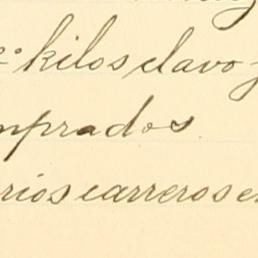 kilos clavo
mprados.
rios carreros e